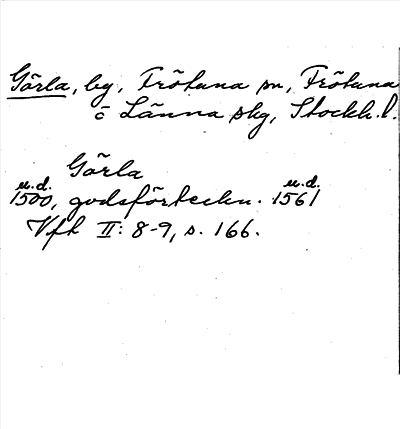 Görla, by, Frötuna sn, Frötuna
o Länna skg, Stockh. l.
Görla
u.d. u.d.
1500, godsförteckn. 1561
Vfk II: 8-9, s. 166.